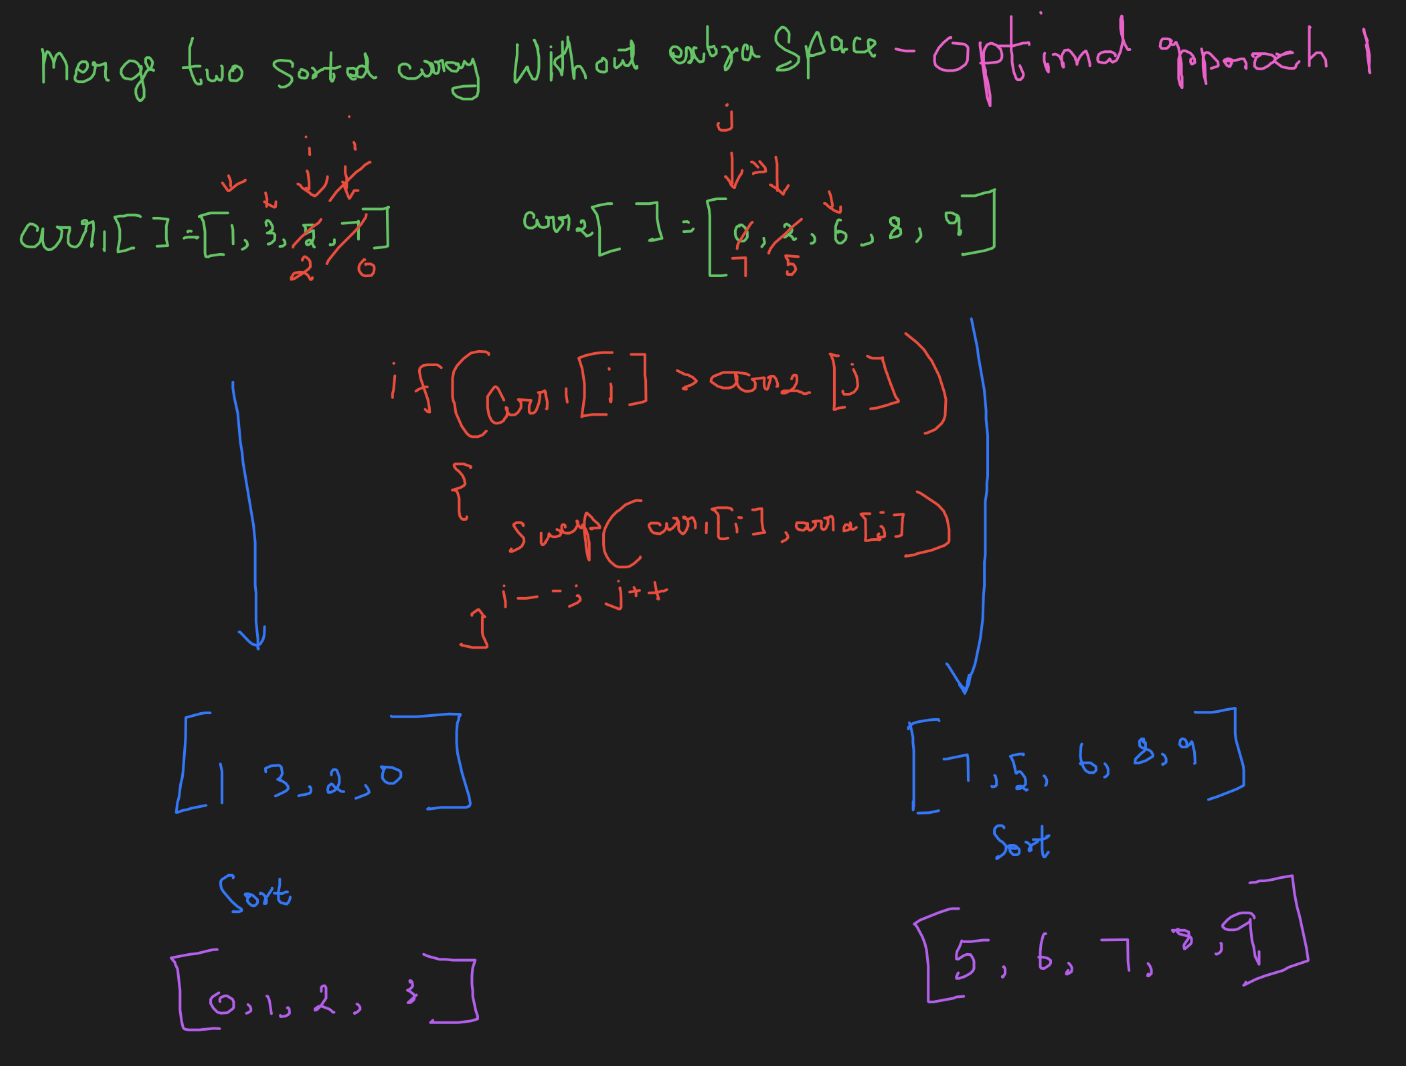 Merge two Sorted array Without extra Space - Optimal approach 1
i i j
arr1[ ] = [1, 3, 5, 7] arr2[ ] = [0, 2, 6, 8, 9]
2 0 7 5
if(arr1[i] > arr2[j])
{
swap(arr1[i], arr2[j])
i--; j++
}
[1 3, 2, 0] [7, 5, 6, 8, 9]
Sort Sort
[0, 1, 2, 3] [5, 6, 7, 8, 9]